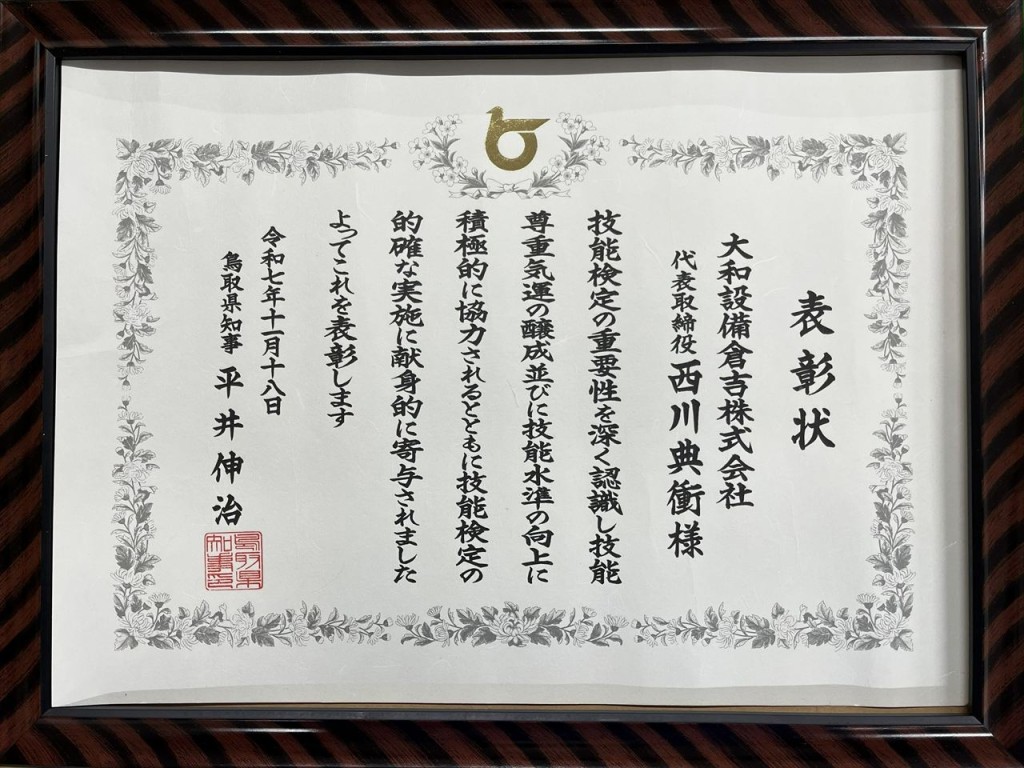 表彰状
大和設備倉吉株式会社
代表取締役 西川典衝様
技能検定の重要性を深く認識し技能
尊重気運の醸成並びに技能水準の向上に
積極的に協力されるとともに技能検定の
的確な実施に献身的に寄与されました
よってこれを表彰します
令和七年十一月十八日
鳥取県知事 平井伸治
鳥取県
知事印